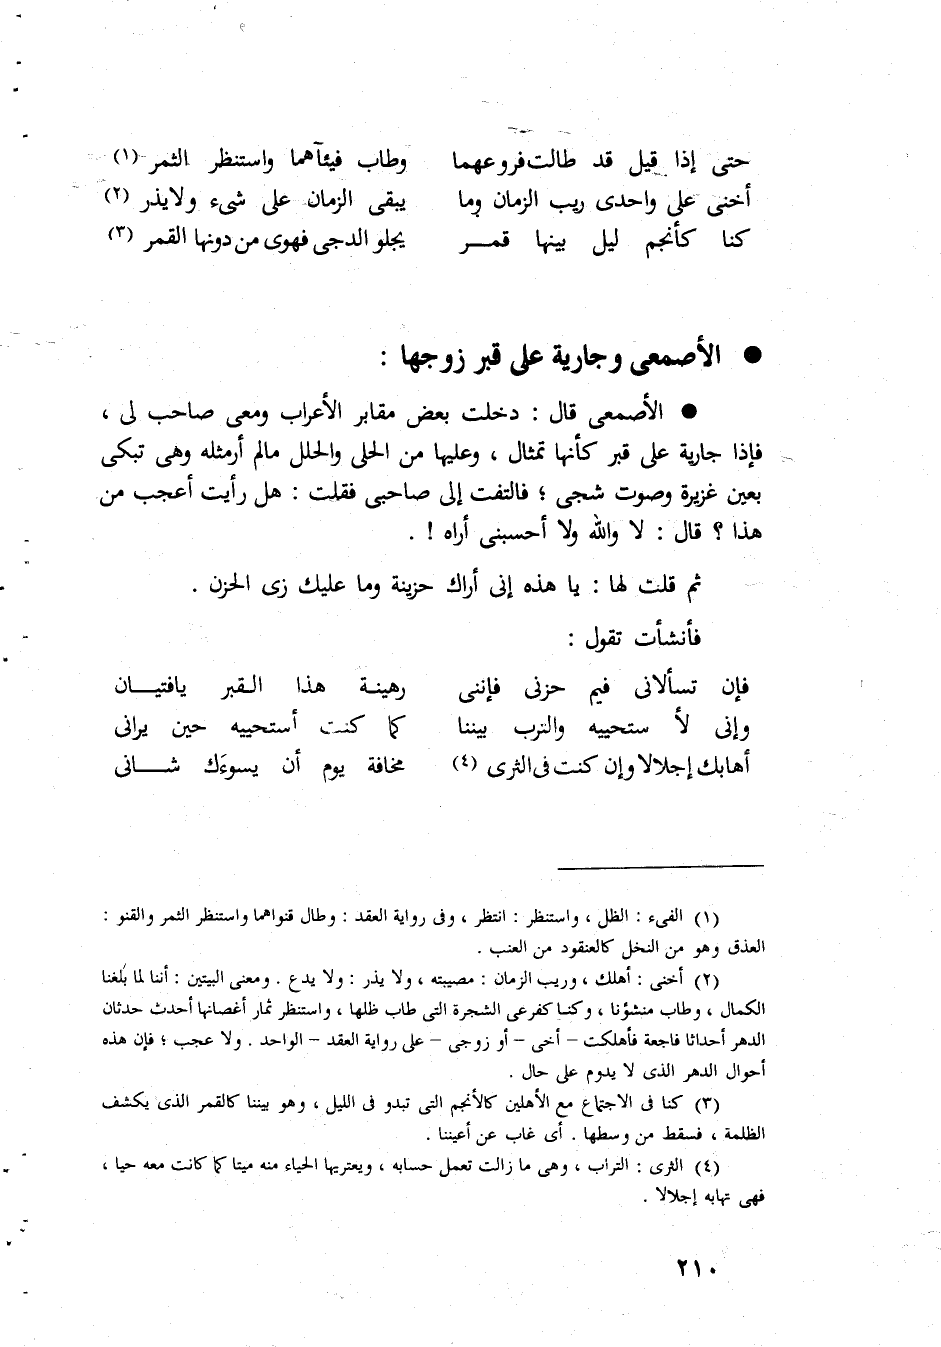 حتى إذا قيل قد طالت فروعهما وطاب فيئآهما واستنظر الثمر (١)
أخنى على واحدى ريب الزمان وما يبقى الزمان على شىء ولايذر (٢)
كنا كأنجم ليل بينها قمـــر يجلو الدجى فهوى من دونها القمر (٣)
● الأصمعى وجارية على قبر زوجها :
● الأصمعى قال : دخلت بعض مقابر الأعراب ومعى صاحب لى ،
فإذا جارية على قبر كأنها تمثال ، وعليها من الحلى والحلل مالم أرمثله وهى تبكى
بعين غزيرة وصوت شجى ؛ فالتفت إلى صاحبى فقلت : هل رأيت أعجب من
هذا ؟ قال : لا والله ولا أحسبنى أراه ! .
ثم قلت لها : يا هذه إنى أراك حزينة وما عليك زى الحزن .
فأنشأت تقول :
فإن تسألانى فيم حزنى فإننى رهينـة هذا الـقبر يافتيـــان
وإنى لأ ستحييه والترب بيننا كما كنت أستحييه حين يرانى
أهابك إجلالا وإن كنت فى الثرى (٤) مخافة يوم أن يسوءَك شـــانى
(١) الفىء : الظل ، واستنظر : انتظر ، وفى رواية العقد : وطال قنواهما واستنظر الثمر والقنو :
العذق وهو من النخل كالعنقود من العنب .
(٢) أخنى : أهلك ، وريب الزمان : مصيبته ، ولا يذر : ولا يدع . ومعنى البيتين : أننا لما بُلغنا
الكمال ، وطاب منشؤنا ، وكنـا كفرعى الشجرة التى طاب ظلها ، واستنظر ثمار أغصانها أحدث حدثان
الدهر أحداثا فاجعة فأهلكت – أخى – أو زوجى – على رواية العقد – الواحد . ولا عجب ؛ فإن هذه
أحوال الدهر الذى لا يدوم على حال .
(٣) كنا فى الاجتماع مع الأهلين كالأنجم التى تبدو فى الليل ، وهو بيننا كالقمر الذى يكشف
الظلمة ، فسقط من وسطها . أى غاب عن أعيننا .
(٤) الثرى : التراب ، وهى ما زالت تعمل حسابه ، ويعتريها الحياء منه ميتا كما كانت معه حيا ،
فهى تهابه إجلالا .
٢١٠